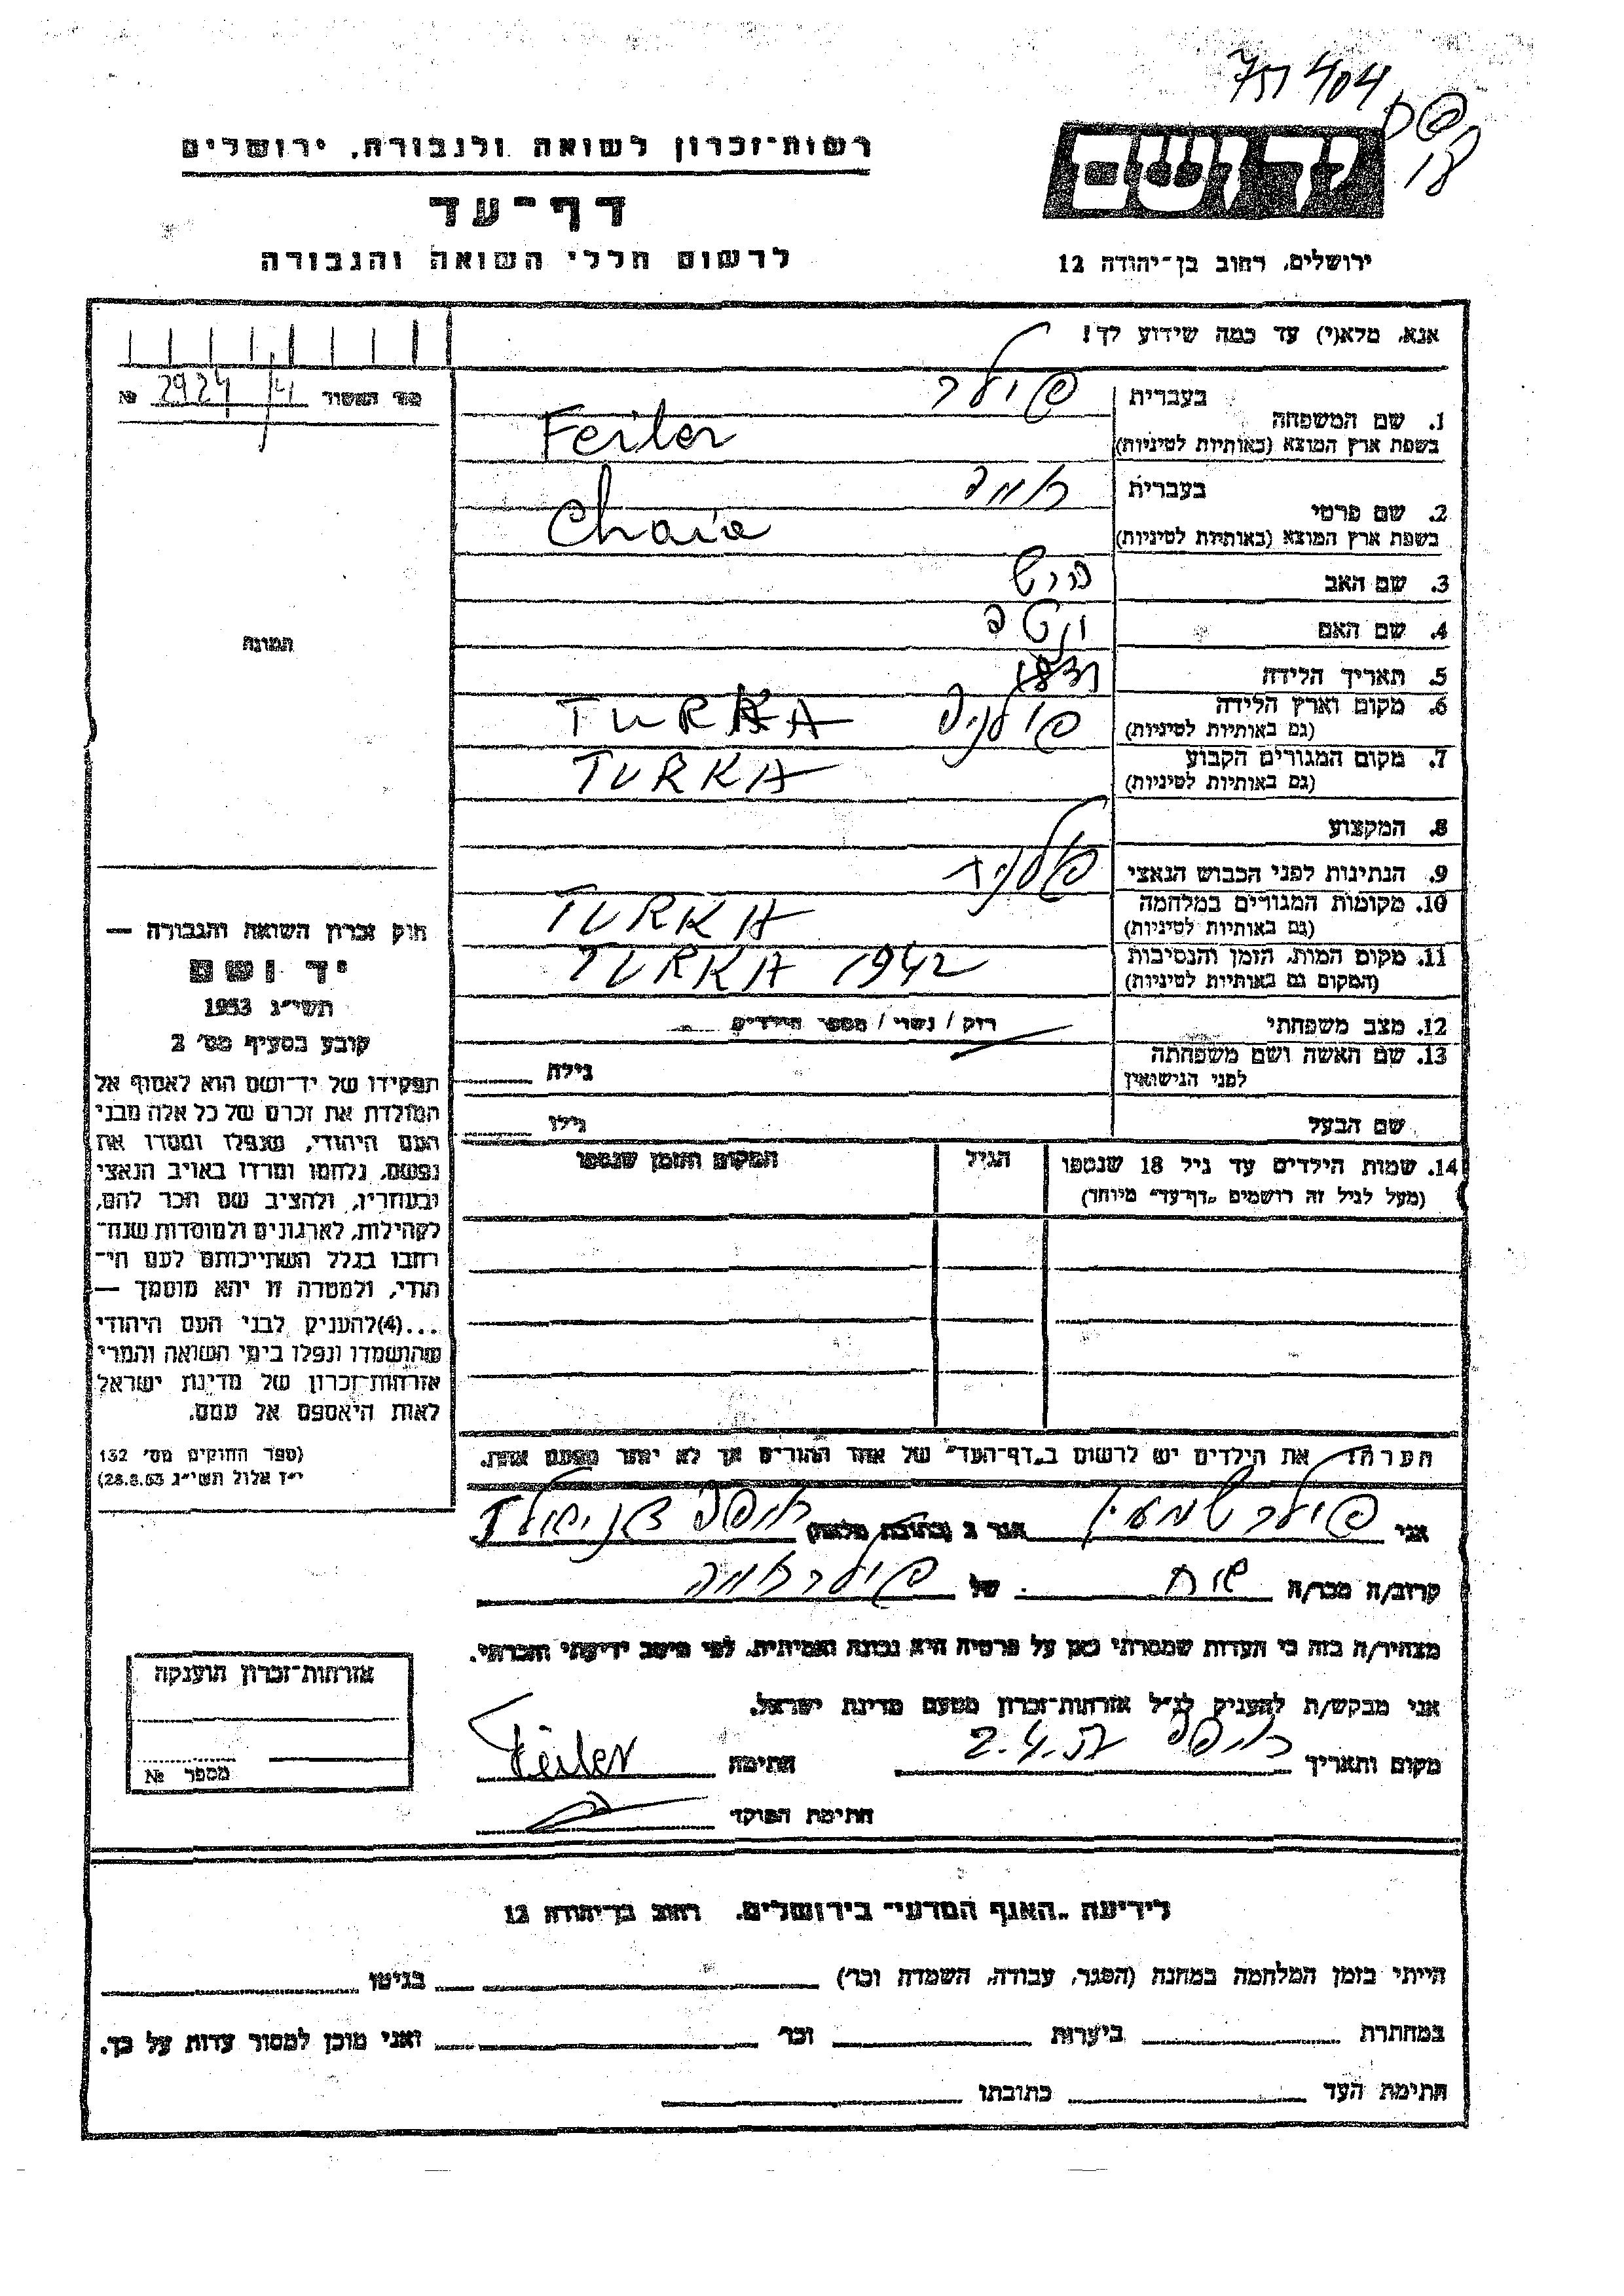 404
רשות־זכרון לשואה ולגבורה, ירושלים
דף־עד
לרשום חללי השואה והגבורה
ירושלים, רחוב בן־יהודה 12
אנא, מלא(י) עד כמה שידוע לך!
№ 2924/4
1. שם המשפחה
בעברית פוילר
בשפת ארץ המוצא (באותיות לטיניות) Feiler
2. שם פרטי
בעברית חיה
בשפת ארץ המוצא (באותיות לטיניות) Chaia
3. שם האב הרש
4. שם האם
5. תאריך הלידה
6. מקום וארץ הלידה
(גם באותיות לטיניות) פולניה TURKA
7. מקום המגורים הקבוע
(גם באותיות לטיניות) TURKA
8. המקצוע
9. הנתינות לפני הכבוש הנאצי פולנית
10. מקומות המגורים במלחמה
(גם באותיות לטיניות) TURKA
11. מקום המות, הזמן והנסיבות
(המקום גם באותיות לטיניות) TURKA 1942
12. מצב משפחתי רוק / נשוי / מספר הילדים
13. שם האשה ושם משפחתה
לפני הנישואין גילה
שם הבעל גילו
14. שמות הילדים עד גיל 18 שנספו הגיל המקום והזמן שנספו
(מעל לגיל זה רושמים „דף־עד” מיוחד)
הערה: את הילדים יש לרשום ב„דף־העד” של אחד ההורים אך לא יותר מפעם אחת.
תמונה
חוק זכרון השואה והגבורה —
יד ושם
תשי״ג 1953
קובע בסעיף מס׳ 2
תפקידו של יד־ושם הוא לאסוף אל
המולדת את זכרם של כל אלה מבני
העם היהודי, שנפלו ומסרו את
נפשם, נלחמו ומרדו באויב הנאצי
ובעוזריו, ולהציב שם וזכר להם,
לקהילות, לארגונים ולמוסדות שנח־
רבו בגלל השתייכותם לעם הי־
הודי, ולמטרה זו יהא מוסמך —
...(4) להעניק לבני העם היהודי
שהושמדו ונפלו בימי השואה והמרי
אזרחות־זכרון של מדינת ישראל
לאות היאספם אל עמם.
(ספר החוקים מס׳ 132
י״ז אלול תשי״ג 28.8.53)
אני פוילר שמעון הגר ב (כתובת מלאה) חיפה
קרוב/ה מכר/ה אח של פוילר חיה
מצהיר/ה בזה כי העדות שמסרתי כאן על פרטיה היא נכונה ואמיתית, לפי מיטב ידיעתי והכרתי.
אני מבקש/ת להעניק לנ״ל אזרחות־זכרון מטעם מדינת ישראל.
מקום ותאריך חיפה 2.4.57 חתימה Feiler
חתימת הפוקד
אזרחות־זכרון הוענקה
מספר №
לידיעת „האגף המדעי” בירושלים, רחוב בן־יהודה 12
הייתי בזמן המלחמה במחנה (הסגר, עבודה, השמדה וכו׳) בגיטו
במחתרת ביערות וכו׳ ואני מוכן למסור עדות על כך.
חתימת העד כתובתו